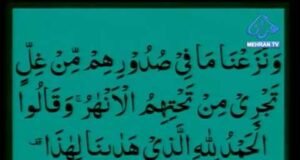 MEHRAN TV
وَنَزَعْنَا مَا فِىْ صُدُوْرِهِمْ مِّنْ غِلٍّ
تَجْرِىْ مِنْ تَحْتِهِمُ الْاَنْهٰرُ ۚ وَقَالُوا
الْحَمْدُ لِلّٰهِ الَّذِىْ هَدٰىنَا لِهٰذَا